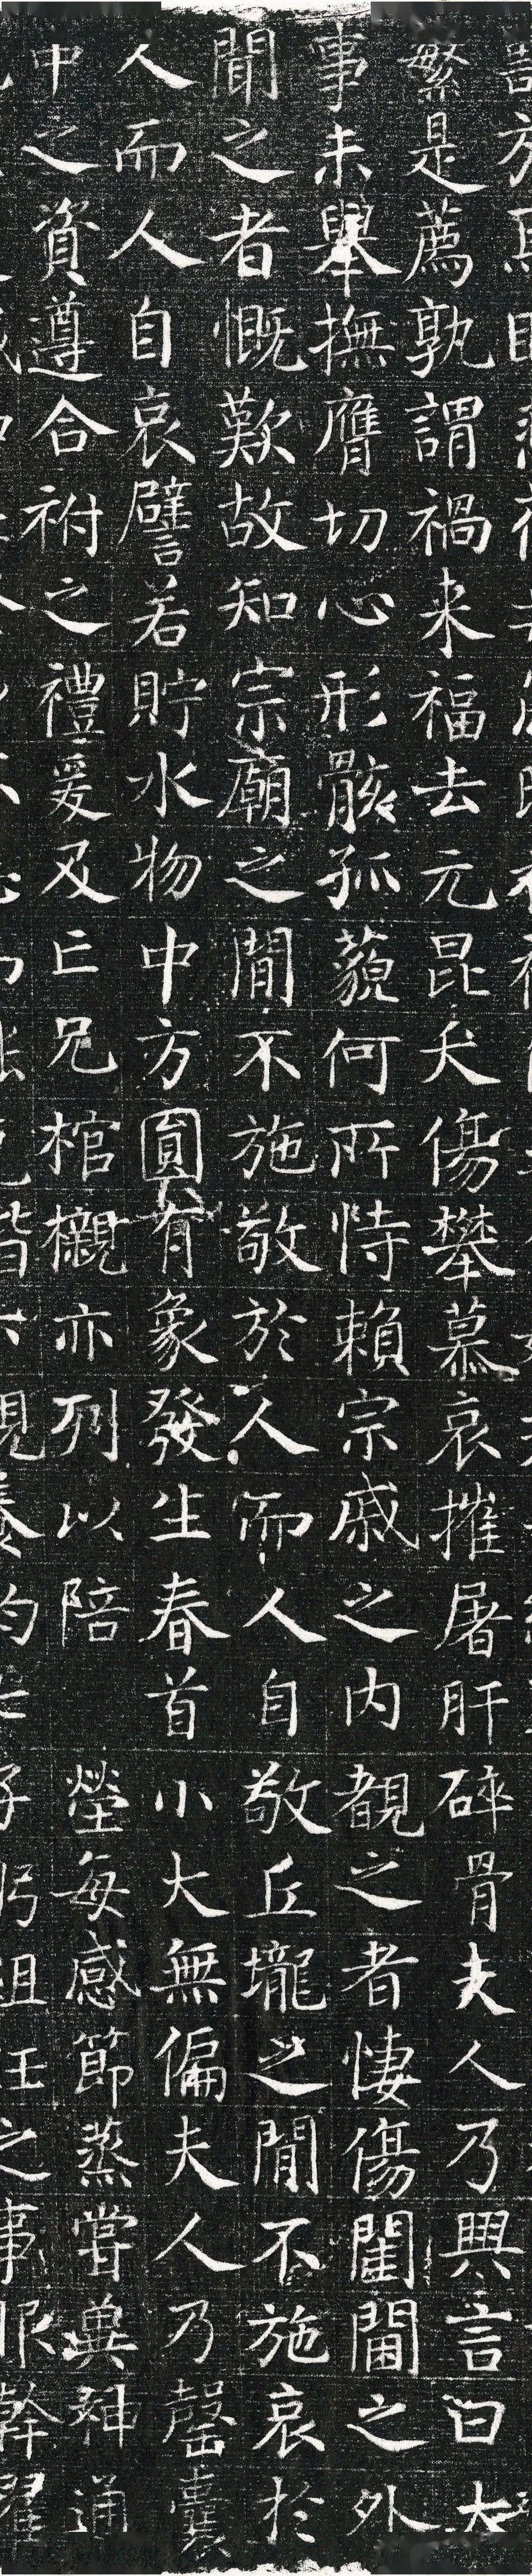 繁是薦孰謂禍来福去元昆夭傷攀慕哀摧屠肝碎骨夫人乃興言曰大
事未舉撫膺切心形骸孤藐何所恃賴宗戚之内覩之者悽傷閨閫之外
聞之者慨歎故知宗廟之間不施敬於人而人自敬丘壠之間不施哀於
人而人自哀譬若貯水物中方圓有象發生春首小大無偏夫人乃罄囊
中之資遵合祔之禮爰及亡兄棺櫬亦列以陪 塋每感節蒸嘗冀神通